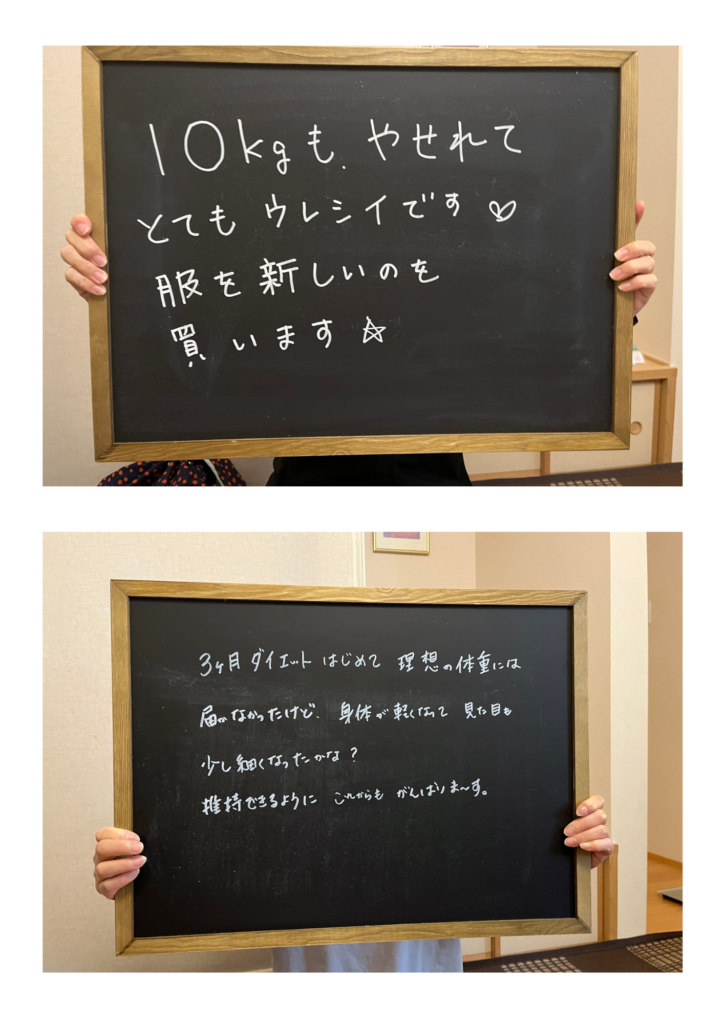 10kgも、やせれて
とても ウレシイです ♡
服を新しいのを
買います ☆
3ヶ月 ダイエット はじめて 理想の体重には
届かなかったけど、身体が軽くなって 見た目も
少し細くなったかな?
維持できるように これからも がんばりま〜す。